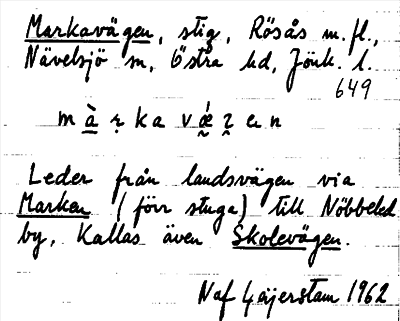 Markavägen, stig, Rösås m.fl.,
Nävelsjö sn, Östra hd, Jönk. l.
649
Leder från landsvägen via
Marken (förr stuga) till Nöbbeled
by, Kallas även Skolevägen.
Naf Gäijerstam 1962